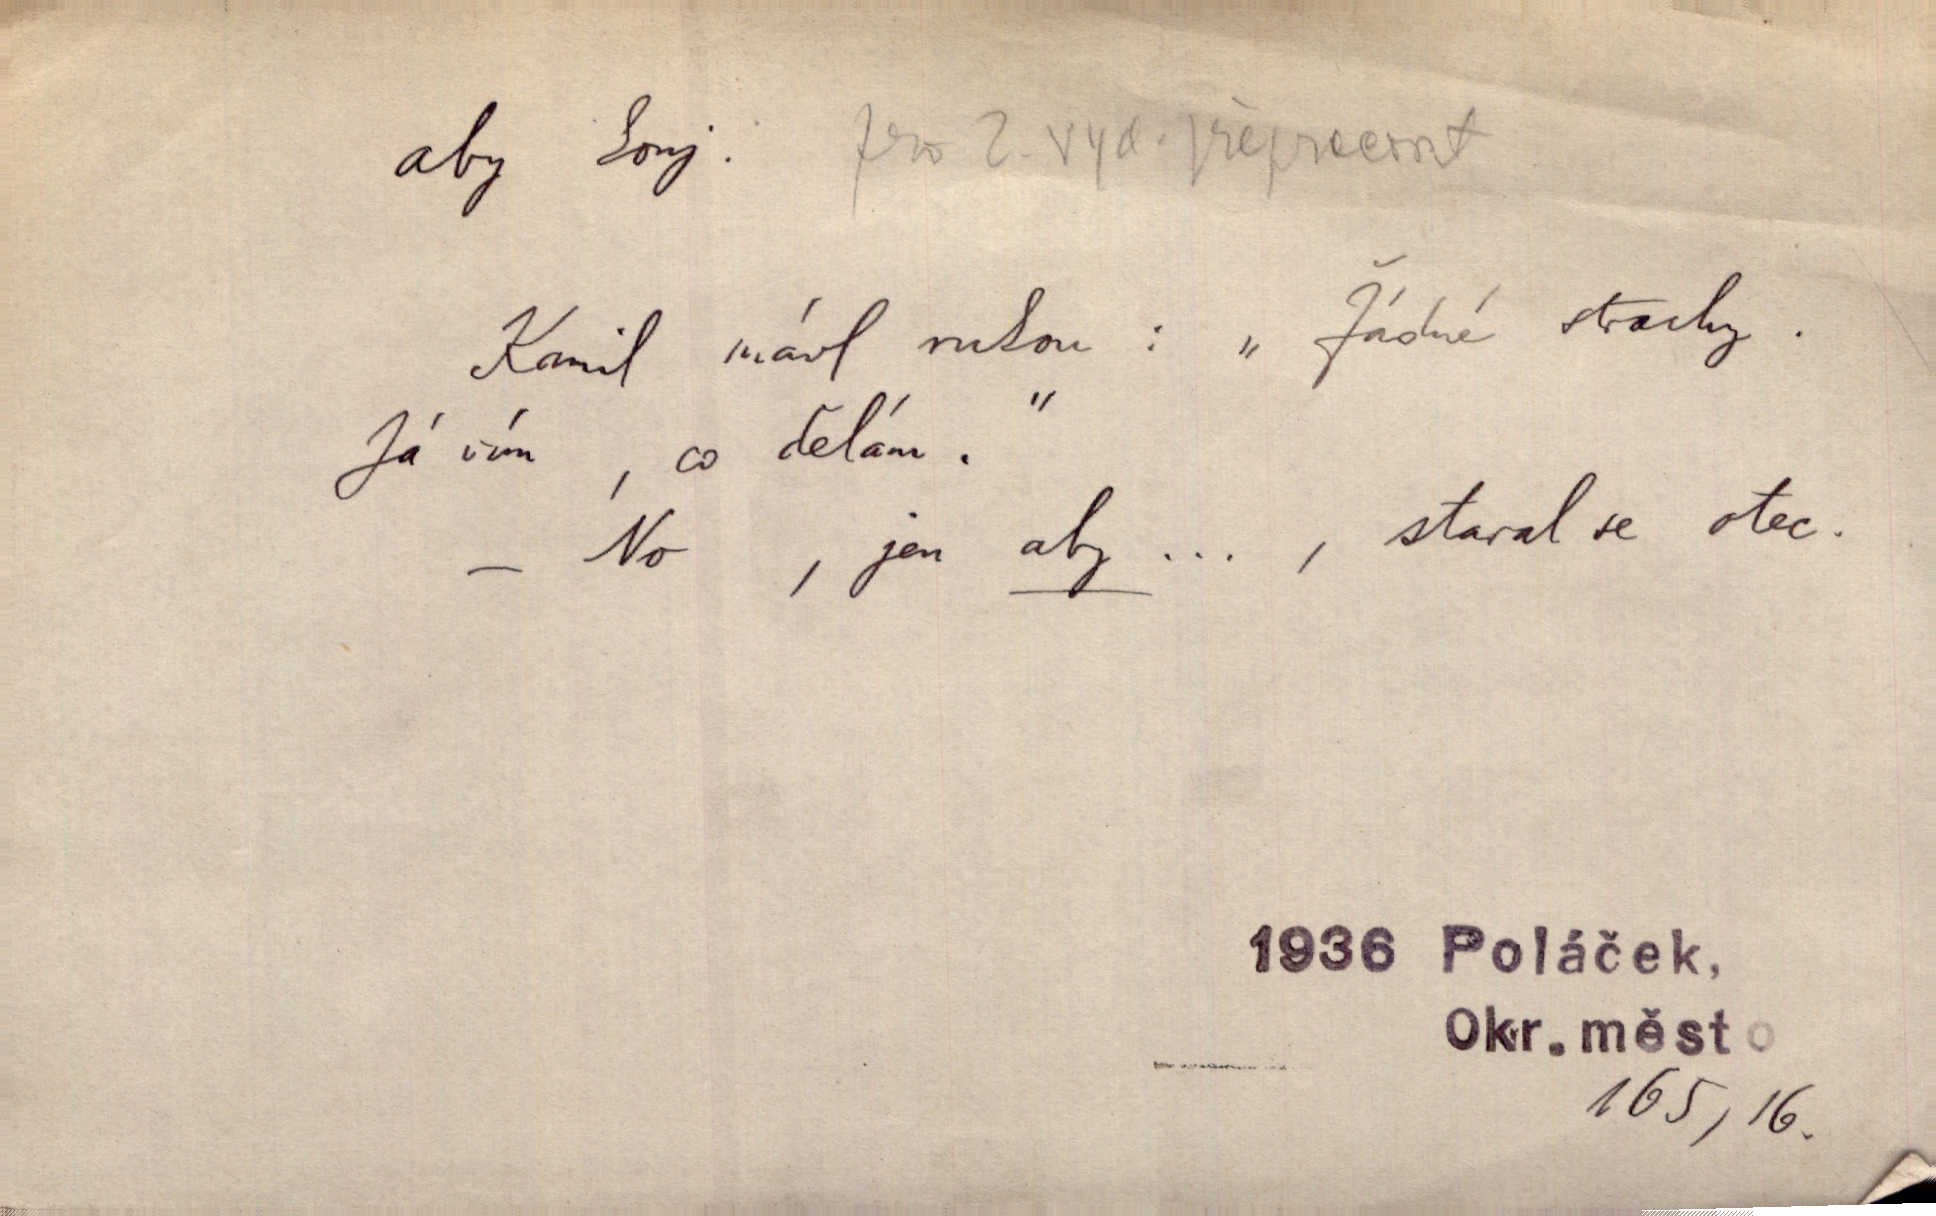 aby konj. pro 2. vyd. přepracovat
Kamil mávl rukou : „ Žádné strachy .
Já vím , co dělám . "
– No , jen aby ... , staral se otec .
1936 Poláček,
Okr. město
165, 16.